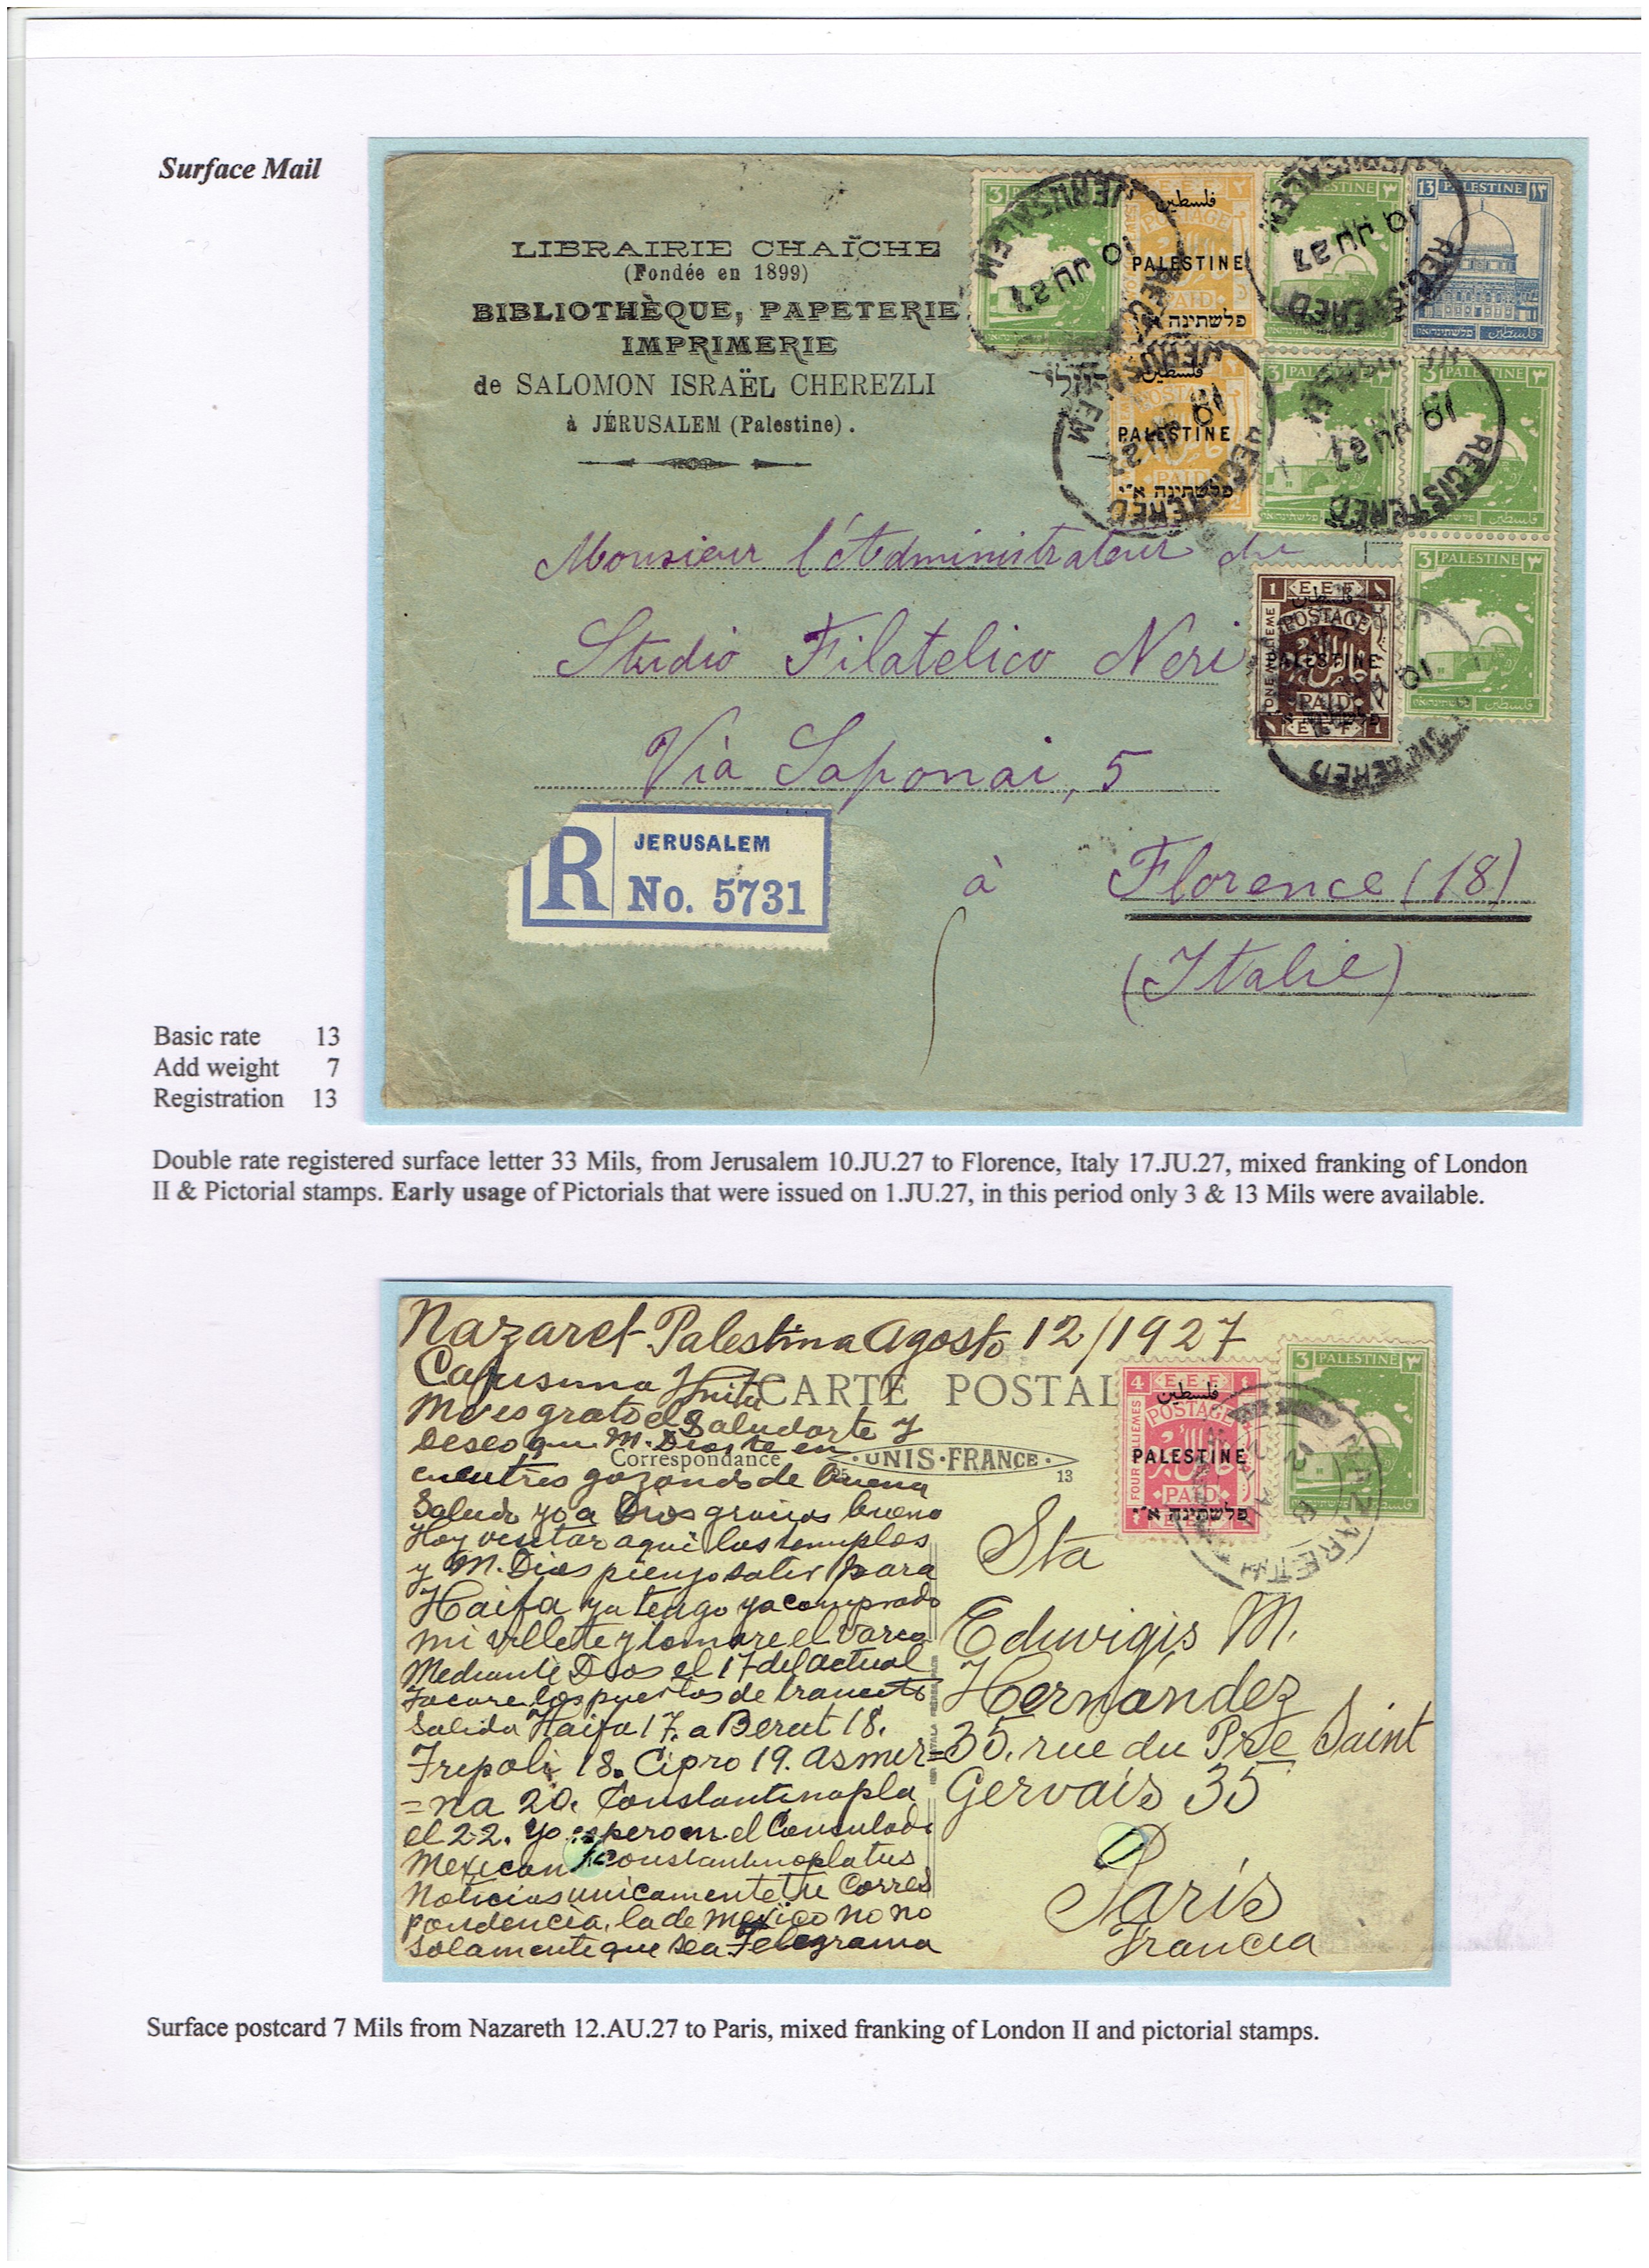 Surface Mail
LIBRAIRIE CHAÏCHE
(Fondée en 1899)
BIBLIOTHÈQUE, PAPETERIE
IMPRIMERIE
de SALOMON ISRAËL CHEREZLI
à JÉRUSALEM (Palestine).
3 PALESTINE ٣
فلسطين
POSTAGE
PALESTINE
PAID
פלשתינה א״י
3 PALESTINE ٣
13 PALESTINE ١٣
JERUSALEM
10 JU 27
REGISTERED
فلسطين
PALESTINE
PAID
פלשתינה א״י
3 PALESTINE ٣
3 PALESTINE ٣
3 PALESTINE ٣
1 E.E.F. ١
POSTAGE
PALESTINE
ONE MILLIEME
PAID
E.E.F
Monsieur l'Administrateur du
Studio Filatelico Neri
Via Saponai, 5
à Florence (18)
(Italie)
R JERUSALEM
No. 5731
Basic rate 13
Add weight 7
Registration 13
Double rate registered surface letter 33 Mils, from Jerusalem 10.JU.27 to Florence, Italy 17.JU.27, mixed franking of London
II & Pictorial stamps. Early usage of Pictorials that were issued on 1.JU.27, in this period only 3 & 13 Mils were available.
Nazaret-Palestina Agosto 12/1927
CARTE POSTAL
Correspondance
UNIS-FRANCE
13
4 E.E.F. ٤
فلسطين
POSTAGE
PALESTINE
FOUR MILLIEMES
PAID
פלשתינה א״י
3 PALESTINE ٣
NAZARETH
Me es grato el Saludarte y
Deseo que M. Dios te en
cuentres gozando de buena
Salud yo a Dios gracias bueno
Hoy visitar aqui los templos
y M. Dios pienso salir para
Haifa ya tengo ya comprado
mi villete y tomare el varco
Mediante Dios el 17 del actual
los puertos de
Salida Haifa 17. a Berut 18.
Trepoli 18. Cipro 19. asmir=
=na 20. Constantinopla
el 22. Yo espero en el Consulado
Mexicano Constantinopla tus
Noticias unicamente tu Corres
pondencia, la de mexico no no
Solamente que sea Telegrama
Sta
Eduwigis M.
Hernández
35. rue du Pre Saint
Gervais 35
Paris
Francia
Surface postcard 7 Mils from Nazareth 12.AU.27 to Paris, mixed franking of London II and pictorial stamps.